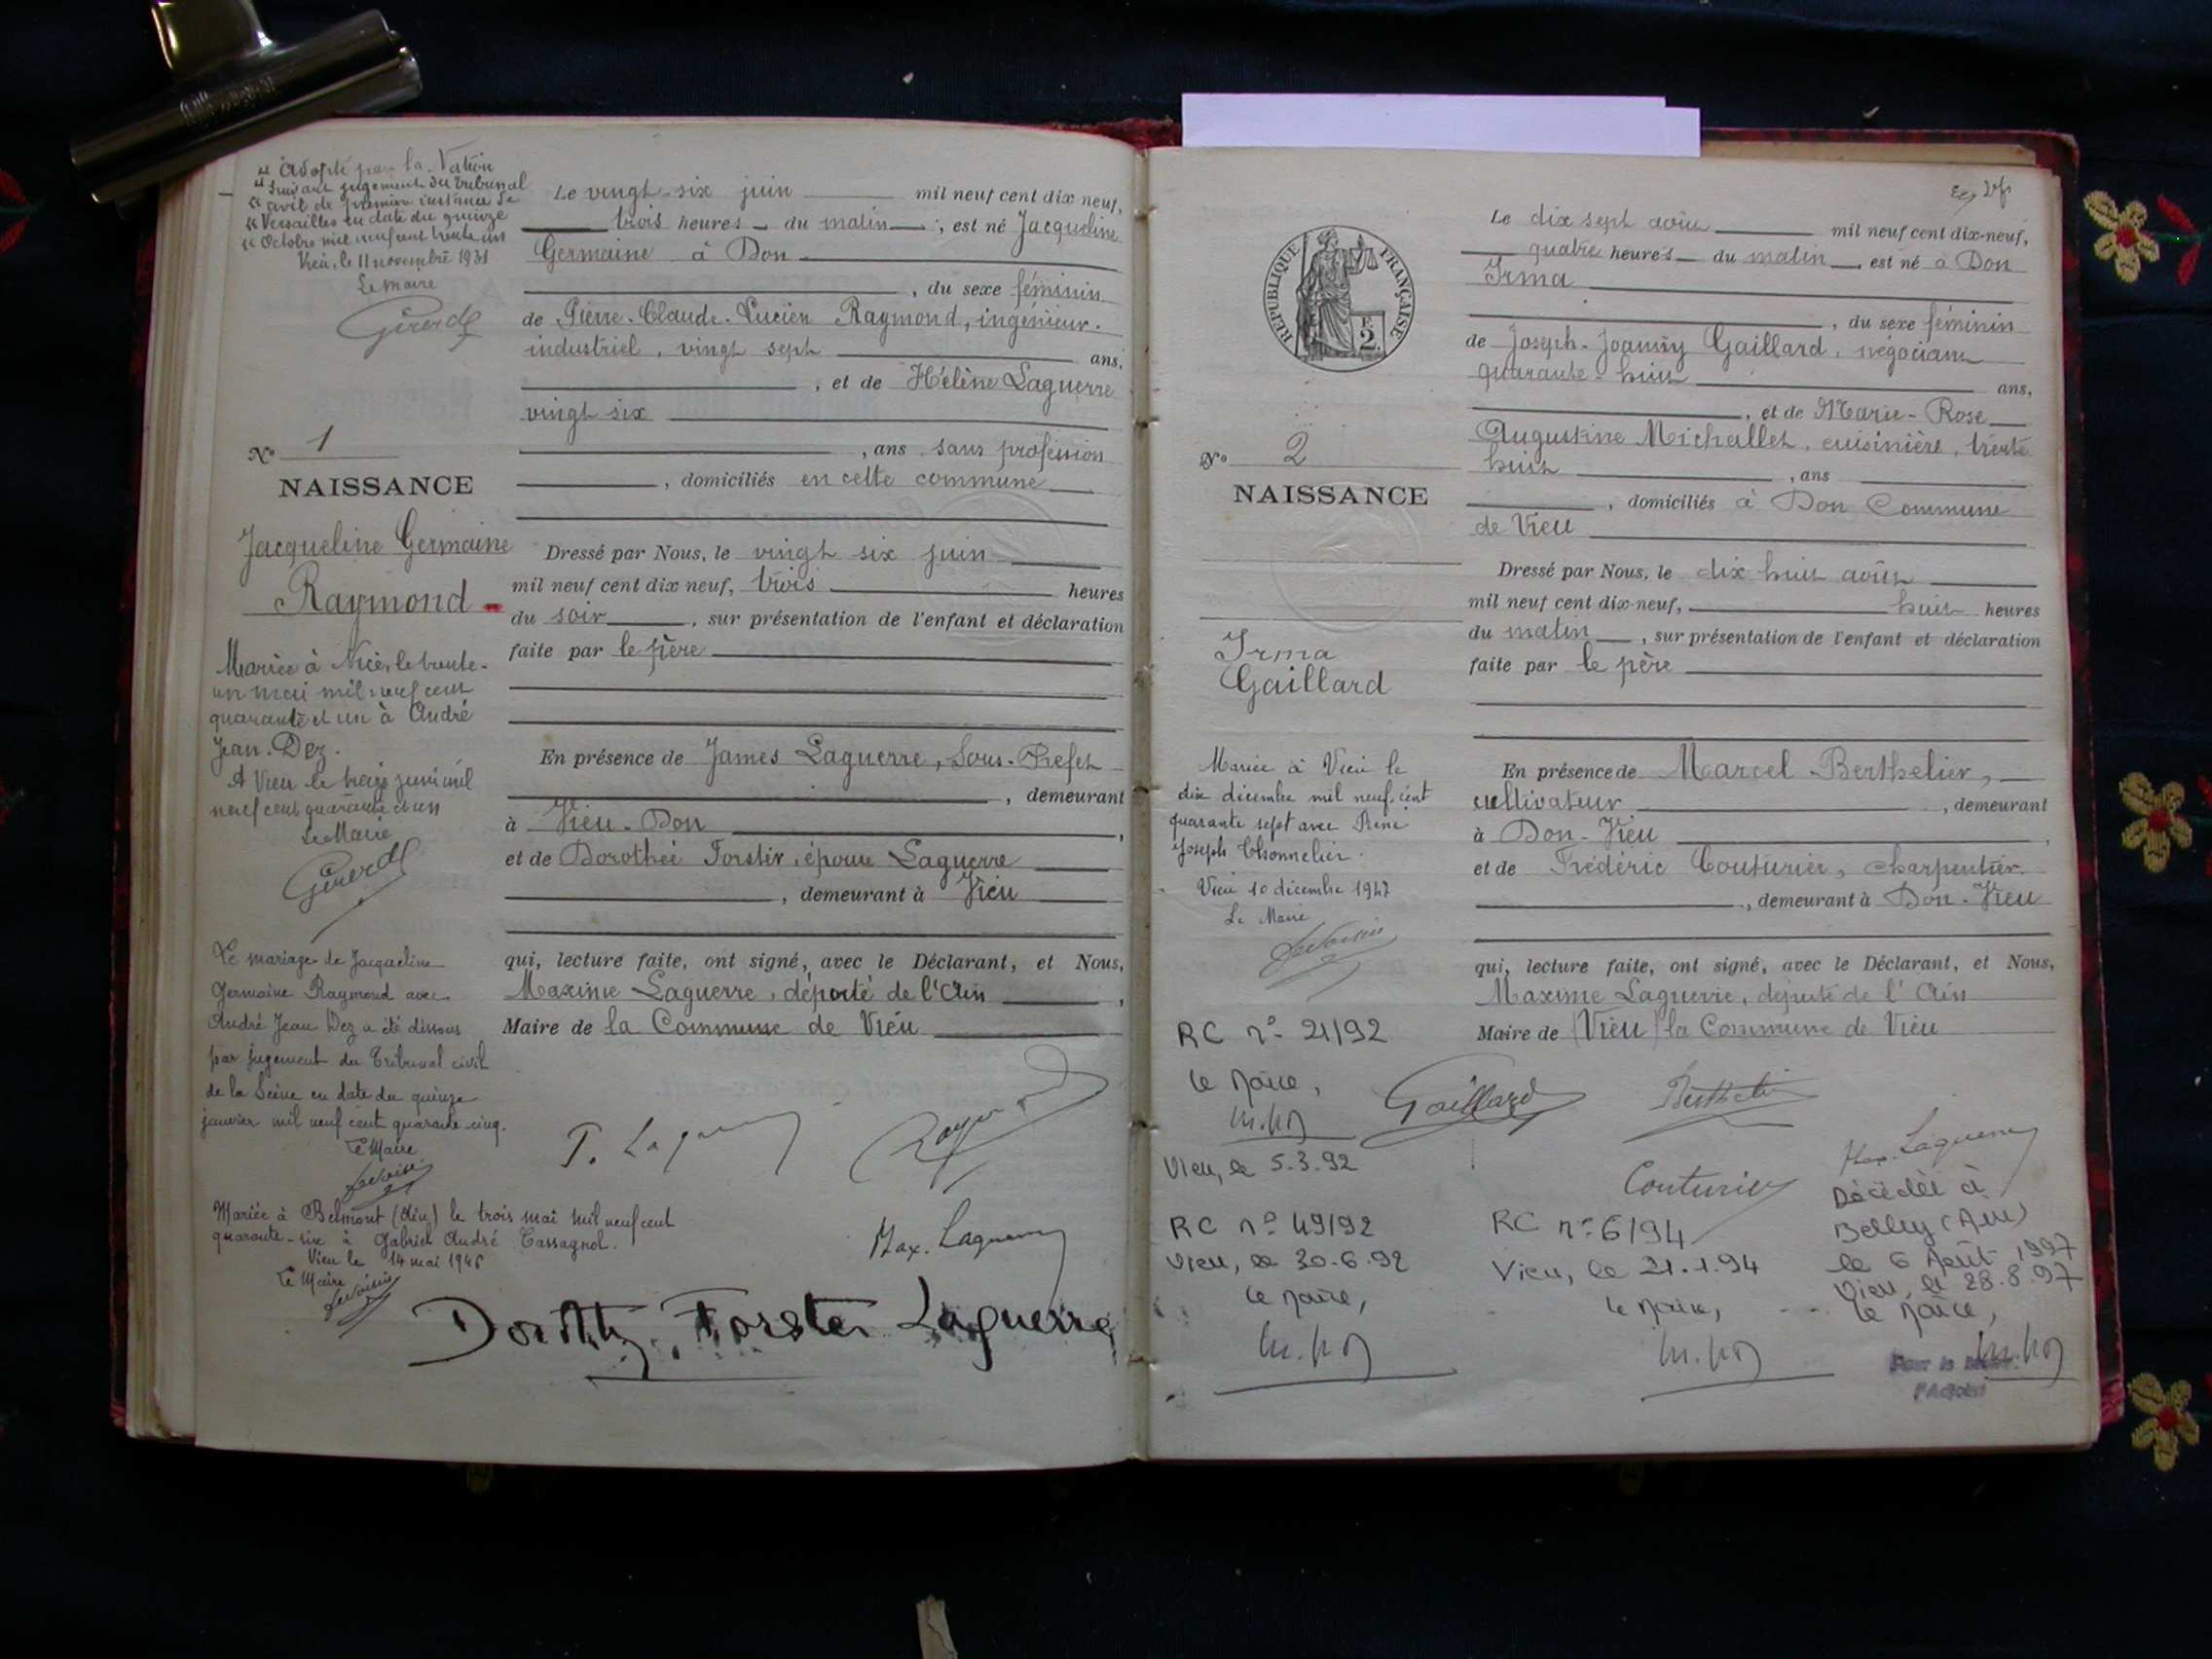 " Adopté par la Nation
" suivant jugement du tribunal
" civil de première instance de
" Versailles en date du quinze
" Octobre mil neuf cent trente un
Vieu, le 11 novembre 1931
Le Maire
N° 1
NAISSANCE
Jacqueline Germaine
Raymond
Mariée à Nice, le trente-
un mai mil neuf cent
quarante et un à André
Jean Dez.
A Vieu le treize juin mil
neuf cent quarante et un
Le Maire
Le mariage de Jacqueline
Germaine Raymond avec
André Jean Dez a été dissous
par jugement du Tribunal civil
de la Seine en date du quinze
janvier mil neuf cent quarante-cinq.
Le Maire
Mariée à Belmont (Ain) le trois mai mil neuf cent
quarante-six à Gabriel André Cassagnol.
Vieu le 14 mai 1946
Le Maire
Le vingt-six juin mil neuf cent dix neuf,
trois heures du matin, est né Jacqueline
Germaine à Don
, du sexe féminin
de Pierre-Claude-Lucien Raymond, ingénieur-
industriel, vingt sept ans,
, et de Hélène Laguerre
vingt six
, ans sans profession
, domiciliés en cette commune
Dressé par Nous, le vingt six juin
mil neuf cent dix neuf, trois heures
du soir, sur présentation de l'enfant et déclaration
faite par le père
En présence de James Laguerre, Sous-Préfet
, demeurant
à Vieu-Don,
et de Dorothée Forster, épouse Laguerre
, demeurant à Vieu
qui, lecture faite, ont signé, avec le Déclarant, et Nous,
Maxime Laguerre, député de l'Ain,
Maire de la Commune de Vieu
Max. Laguerre
Dorothy Forster Laguerre
RÉPUBLIQUE FRANÇAISE
2
N° 2
NAISSANCE
Irma
Gaillard
Mariée à Vieu le
dix décembre mil neuf cent
quarante sept avec René
Joseph Thonnelier.
Vieu 10 décembre 1947
Le Maire
RC n° 21/92
Le Maire,
Vieu, le 5.3.92
RC n° 49/92
Vieu, le 30.6.92
Le Maire,
Le dix sept août mil neuf cent dix-neuf,
quatre heures du matin, est né à Don
Irma
, du sexe féminin
de Joseph-Joanny Gaillard, négociant
quarante-huit ans,
, et de Marie-Rose
Augustine Michallet, cuisinière, trente
huit, ans
, domiciliés à Don Commune
de Vieu
Dressé par Nous, le dix huit août
mil neuf cent dix-neuf, huit heures
du matin, sur présentation de l'enfant et déclaration
faite par le père
En présence de Marcel Berthelier,
cultivateur, demeurant
à Don-Vieu,
et de Frédéric Couturier, charpentier
, demeurant à Don-Vieu
qui, lecture faite, ont signé, avec le Déclarant, et Nous,
Maxime Laguerre, député de l'Ain
Maire de (Vieu) la Commune de Vieu
Gaillard
Couturier
Max. Laguerre
RC n° 6/94
Vieu, le 21.1.94
Le Maire,
Décédée à
Belley (Ain)
le 6 Août 1997
Vieu, le 28.8.97
Le Maire,
Pour le Maire:
l'Adjoint